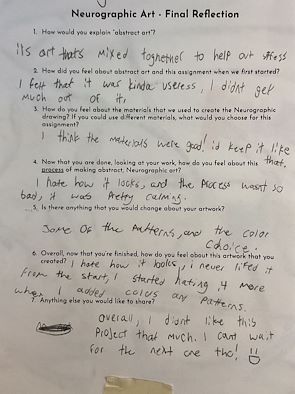 Neurographic Art - Final Reflection
1. How would you explain "abstract art"?
its art thats mixed tognether to help out stress
2. How did you feel about abstract art and this assignment when we first started?
I felt that it was kinda useress, I didnt get
much out of it.
3. How do you feel about the materials that we used to create the Neurographic
drawing? If you could use different materials, what would you choose for this
assignment?
I think the materials were good! id keep it like
that.
4. Now that you are done, looking at your work, how do you feel about this
process of making abstract, Neurographic art?
I hate how it looks, and the process wasnt so
bad, it was pretty calming.
5. Is there anything that you would change about your artwork?
Some of the patterns, and the color
choice.
6. Overall, now that you're finished, how do you feel about this artwork that you
created? I hate how it looks, i never liked it
from the start, I started hating it more
when I added colors and patterns.
7. Anything else you would like to share?
overall, I didnt like this
project that much. I cant wait
for the next one tho!